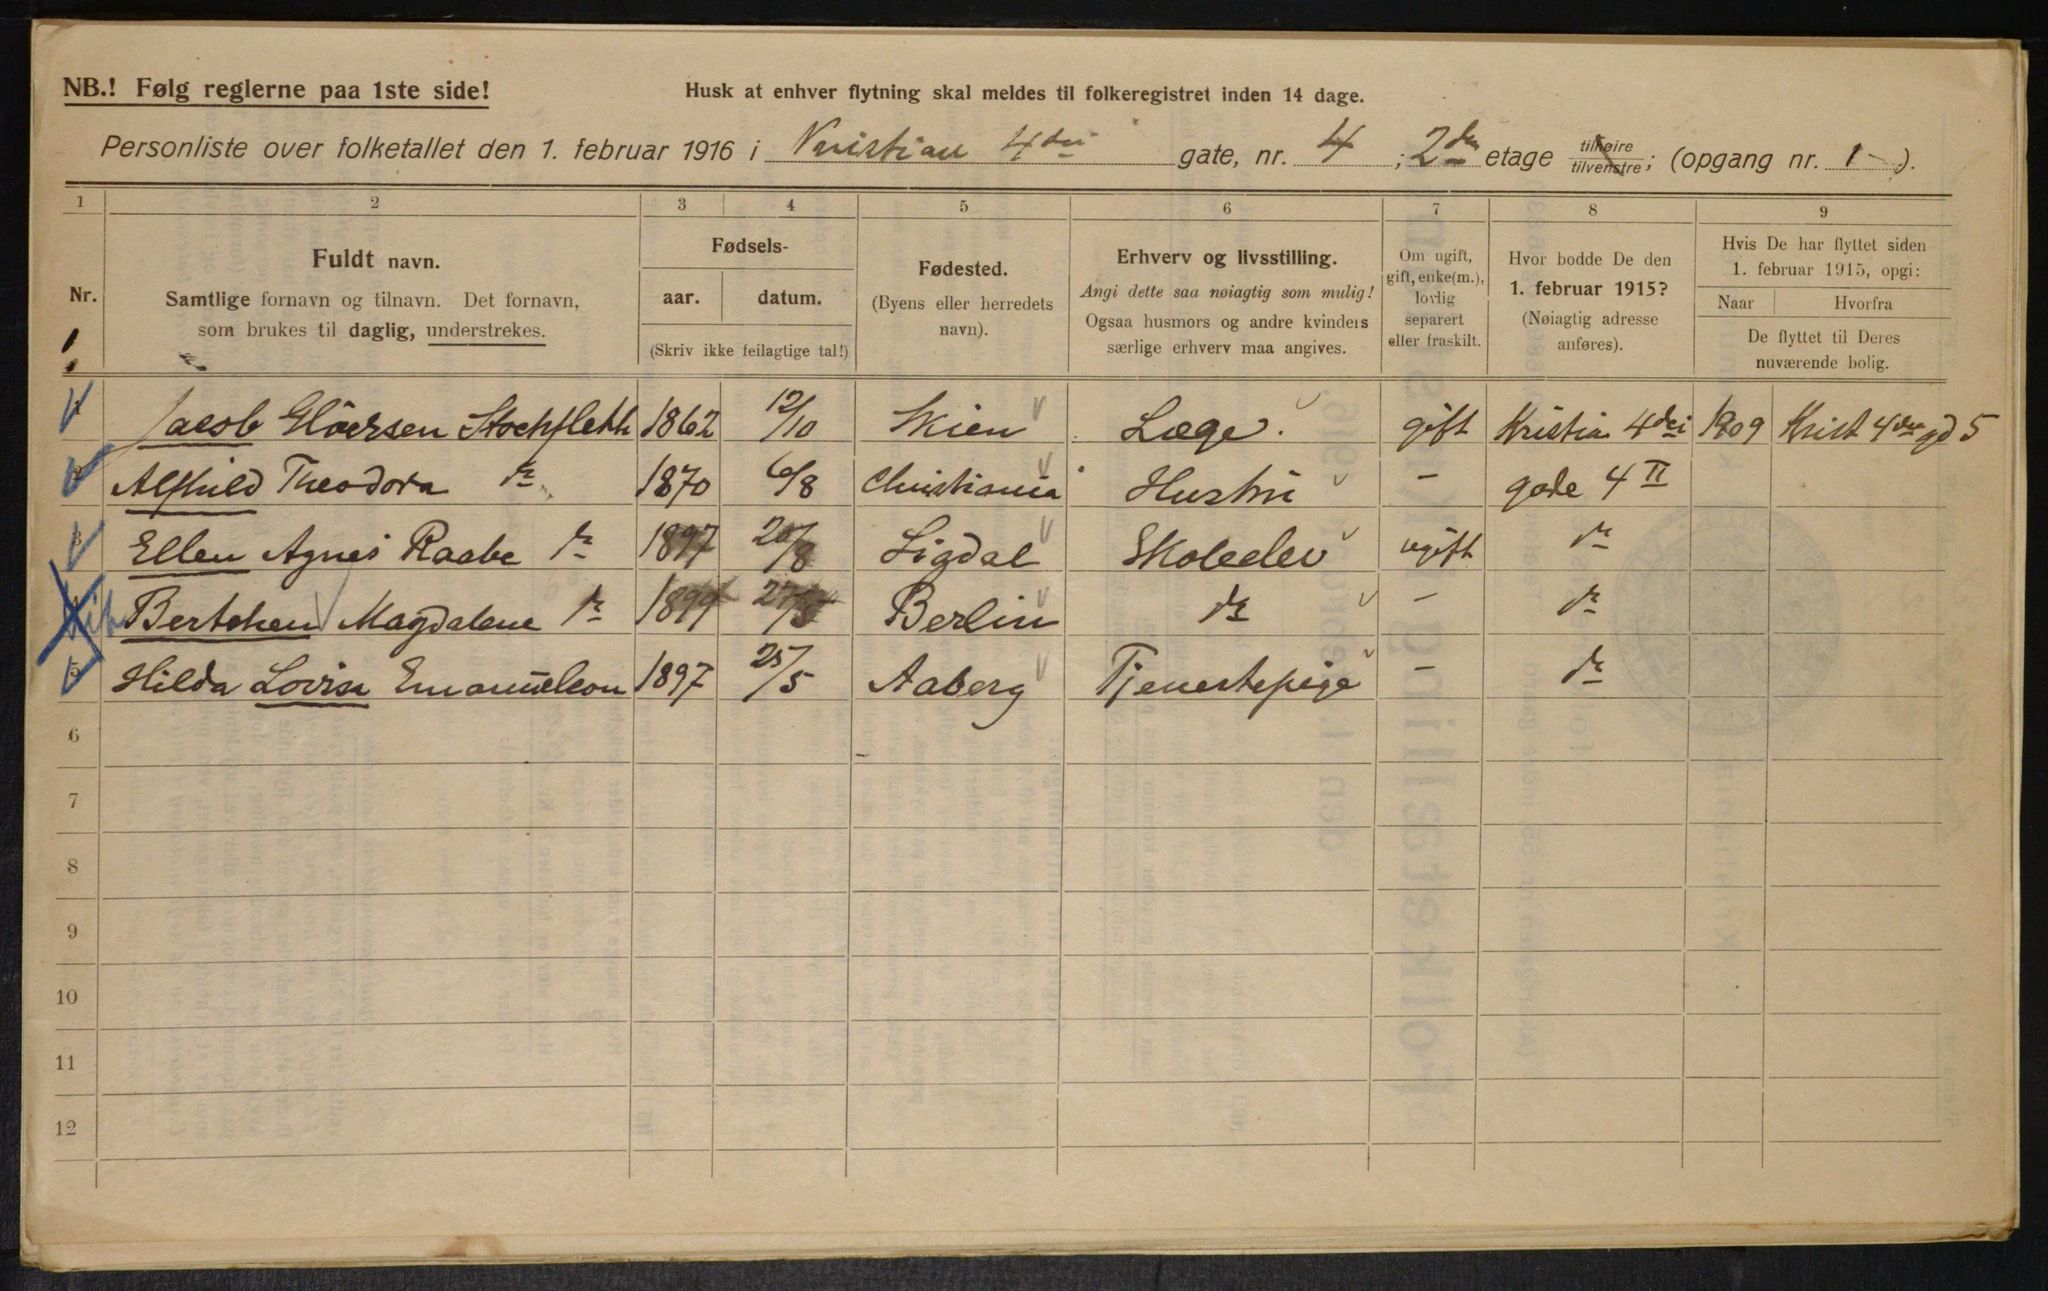 NB.! Følg reglerne paa 1ste side!
Husk at enhver flytning skal meldes til folkeregistret inden 14 dage.
Personliste over folketallet den 1. februar 1916 i Kristian 4des gate, nr. 4 ; 2den etage tilhøire tilvenstre ; (opgang nr. 1 ).
1 2 3 4 5 6 7 8 9
Nr.
Fuldt navn.
Samtlige fornavn og tilnavn. Det fornavn,
som brukes til daglig, understrekes.
Fødsels-
aar. datum.
(Skriv ikke feilagtige tal!)
Fødested.
(Byens eller herredets
navn).
Erhverv og livsstilling.
Angi dette saa nøiagtig som mulig!
Ogsaa husmors og andre kvinders
særlige erhverv maa angives.
Om ugift,
gift, enke(m.),
lovlig
separert
eller fraskilt.
Hvor bodde De den
1. februar 1915?
(Nøiagtig adresse
anføres).
Hvis De har flyttet siden
1. februar 1915, opgi:
Naar Hvorfra
De flyttet til Deres
nuværende bolig.
1 Jacob Gløersen Stockfleth 1862 12/10 Skien Læge. gift Kristian 4des 1909 Krist 4des gd 5
2 Alfhild Theodora do 1870 6/8 Christiania Hustru - gade 4 II
3 Ellen Agnes Raabe do 1897 20/8 Sigdal Skoleelev ugift do
4 Bertchen Magdalene do 1899 Berlin do - do
5 Hilda Lovisa Emanuelson 1897 25/5 Aaberg Tjenestepige - do
6
7
8
9
10
11
12